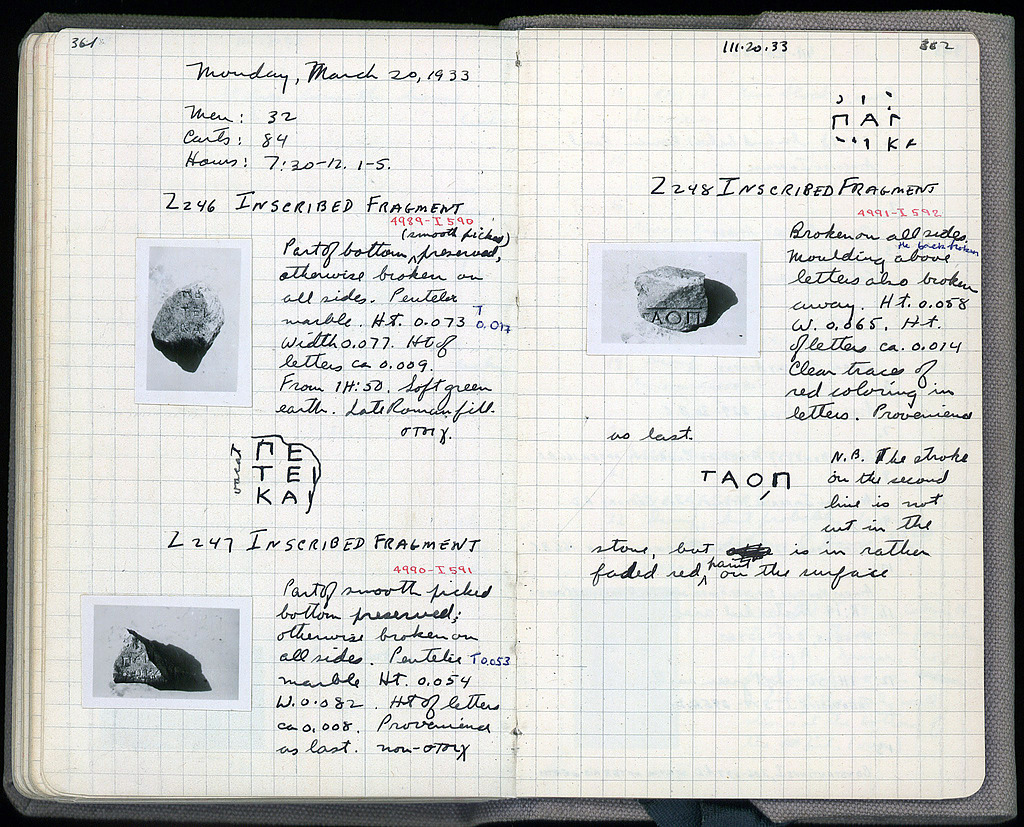 361
Monday, March 20, 1933
Men: 32
Carts: 84
Hours: 7:30-12. 1-5.
Z 246 INSCRIBED FRAGMENT
4989-I 590
(smooth picked)
Part of bottom preserved,
otherwise broken on
all sides. Pentelic
marble. Ht. 0.073 T 0.017
Width 0.077. Ht of
letters ca 0.009.
From 1H:50. Soft green
earth. Late Roman fill.
στοιχ.
vacat
ΠΕ
ΤΕΙ
ΚΑΙ
Z 247 INSCRIBED FRAGMENT
4990-I 591
Part of smooth picked
bottom preserved;
otherwise broken on
all sides. Pentelic T 0.053
marble Ht. 0.054
W. 0.082. Ht of letters
ca 0.008. Provenience
as last. non-στοιχ
111.20.33
362
ΠΑΓ
ΚΑ
Z 248 INSCRIBED FRAGMENT
4991-I 592
Broken on all sides.
the back broken
Moulding above
letters also broken
away. Ht. 0.058
W. 0.065. Ht.
of letters ca. 0.014
Clear traces of
red coloring in
letters. Provenience
as last.
ΤΑΟΠ
N.B. The stroke
on the second
line is not
cut in the
stone, but is in rather
faded red paint on the surface